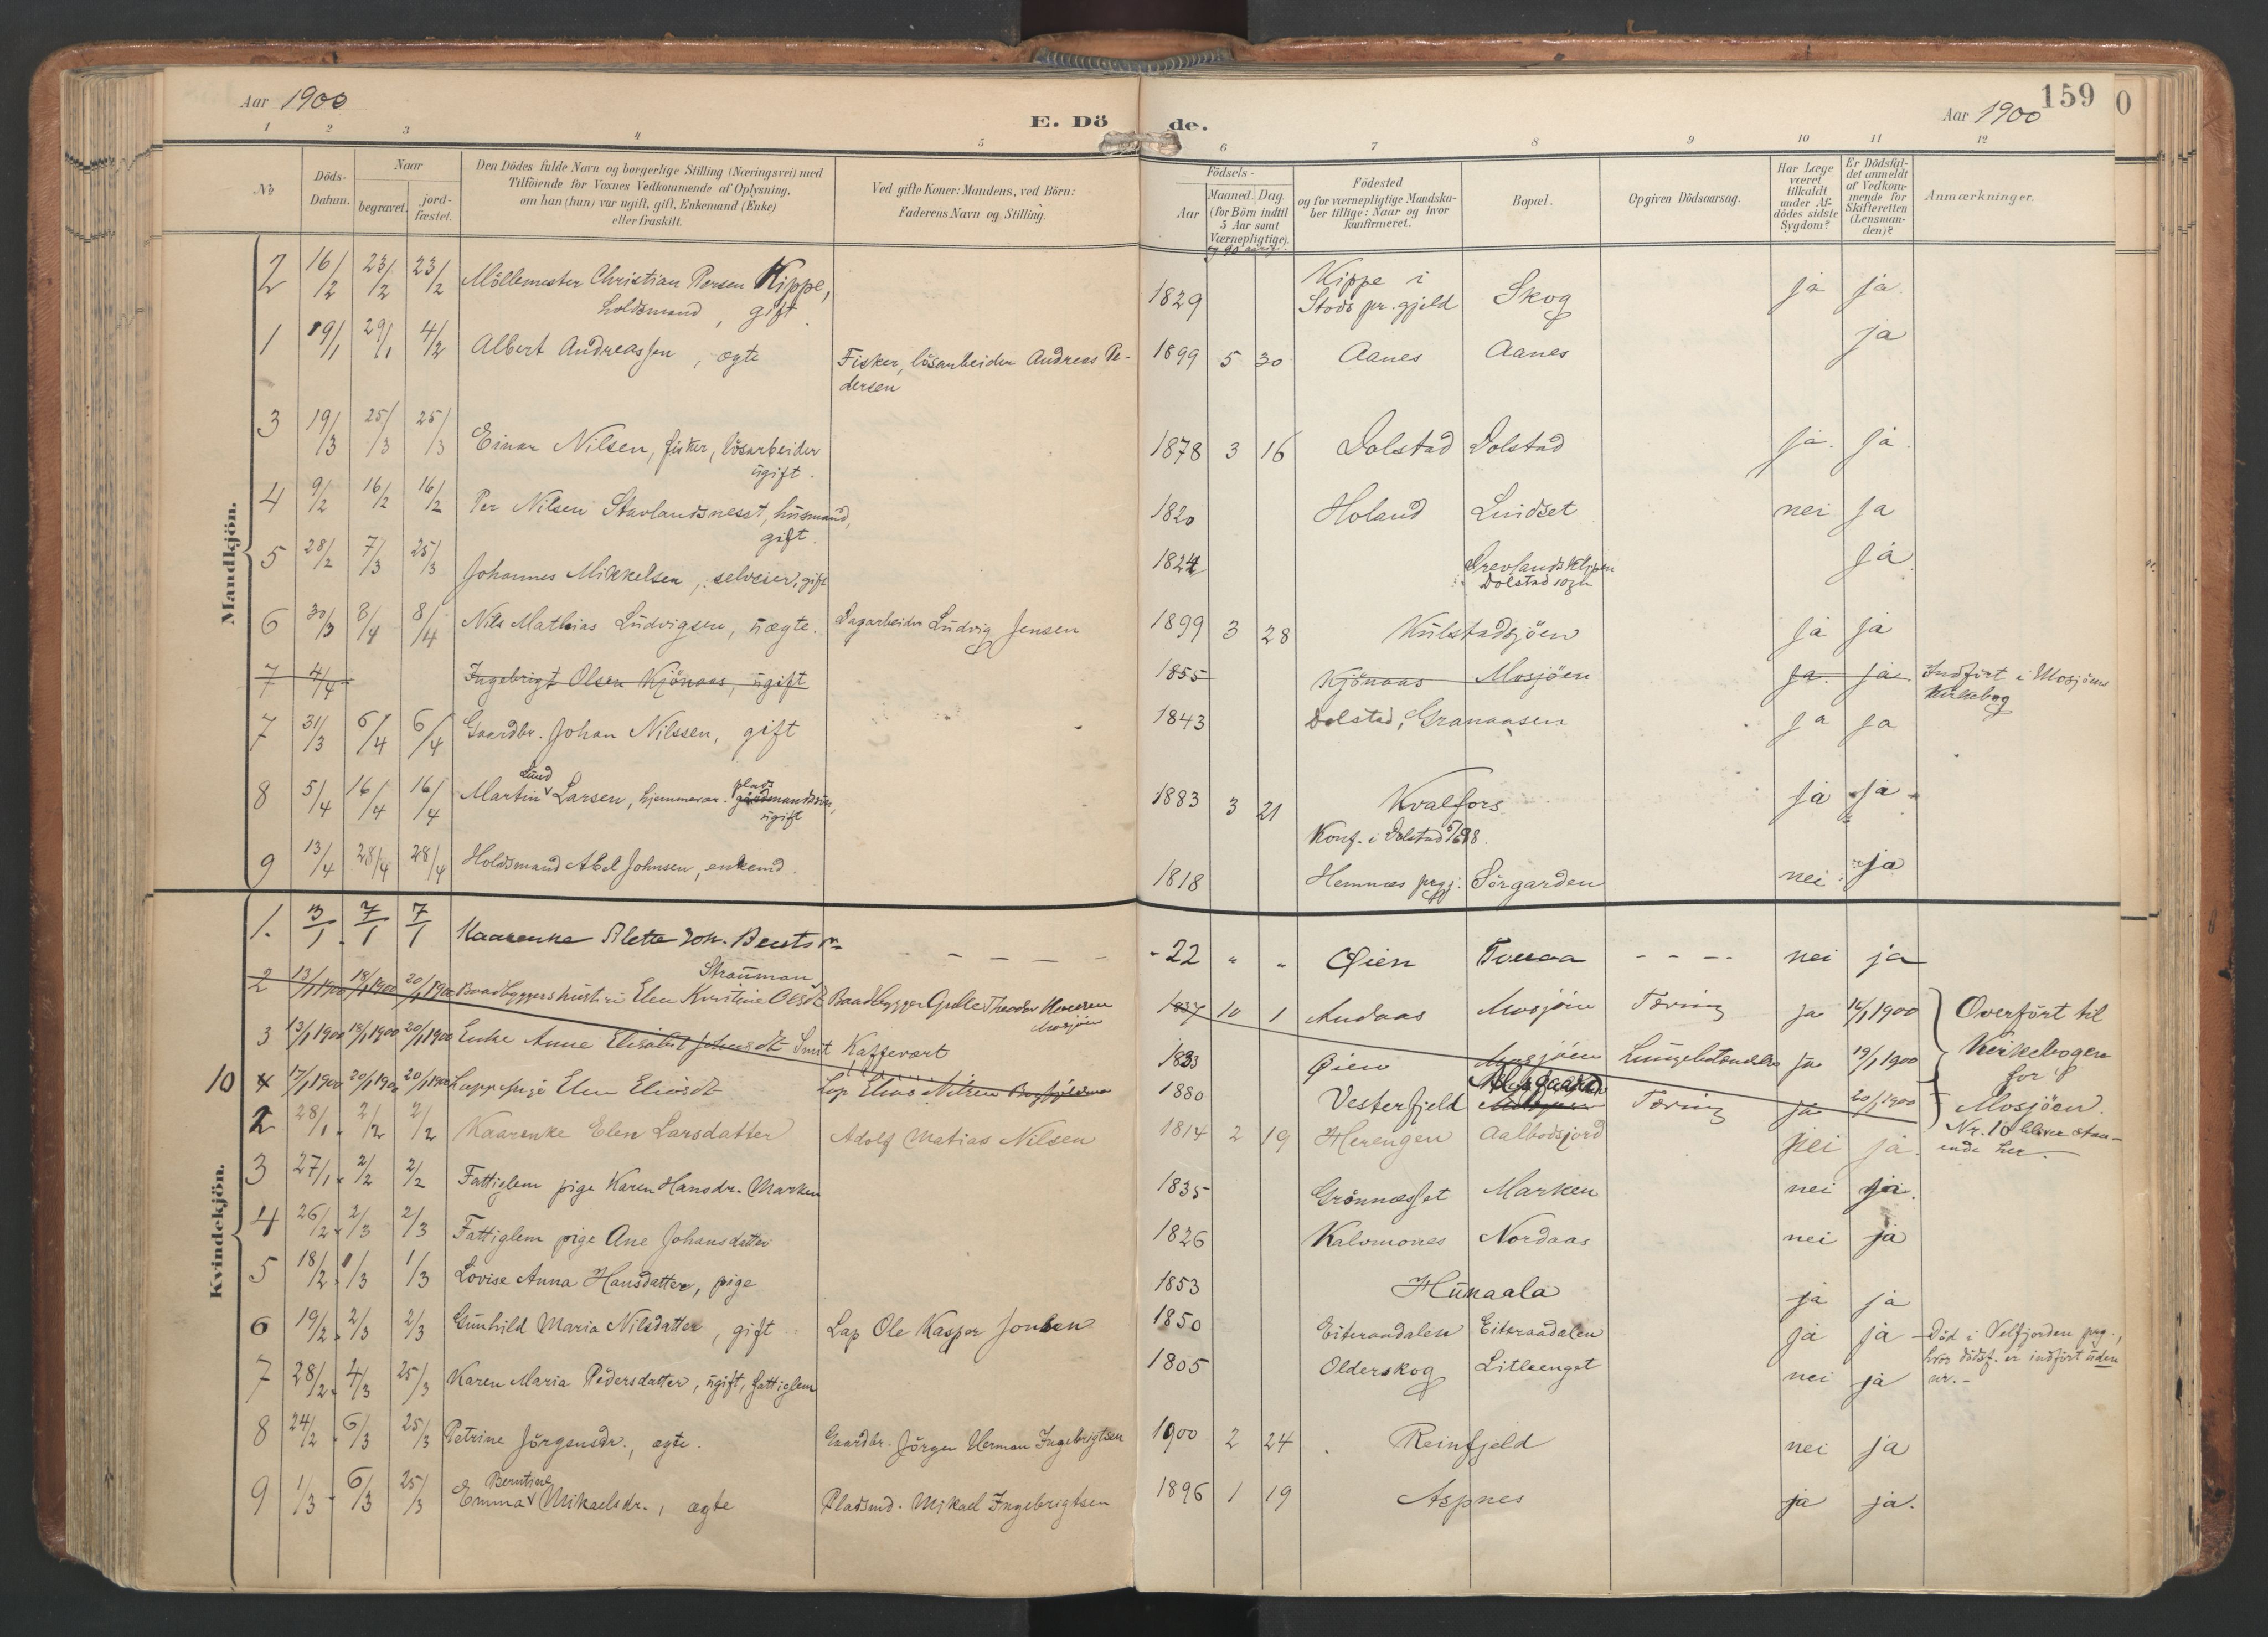 Aar 1900
E. Dö
de.
Aar 1900
159
0
1 2 3 4 5 6 7 8 9 10 11 12
No
Döds-
Datum.
Naar
begravet.
jord-
fæstet.
Den Dödes fulde Navn og borgerlige Stilling (Næringsvei) med
Tilföiende for Voxnes Vedkommende af Oplysning,
om han (hun) var ugift, gift, Enkemand (Enke)
eller fraskilt.
Ved gifte Koner: Mandens, ved Börn:
Faderens Navn og Stilling.
Födsels-
Aar
Maaned. Dag.
(for Börn indtil
5 Aar samt
Værnepligtige).
og 90 aarige.
Födested
og for værnepligtige Mandska-
ber tillige: Naar og hvor
konfirmeret.
Bopæl.
Opgiven Dödsaarsag.
Har Læge
været
tilkaldt
under Af-
dödes sidste
Sygdom?
Er Dödsfal-
det anmeldt
af Vedkom-
mende for
Skifteretten
(Lensman-
den)?
Anmærkninger.
Mandkjön.
2 16/2 23/2 23/2 Möllemester Christian Persen Kippe,
holdsmand, gift. 1829 Kippe i
Stods pr.gjeld Skog ja ja
1 19/1 29/1 4/2 Albert Andreassen, ægte Fisker, lösarbeider Andreas Pe-
dersen 1899 5 30 Aanes Aanes ja
3 19/3 25/3 25/3 Einar Nilsen, fisker, lösarbeider
ugift. 1878 3 16 Dolstad Dolstad ja. ja.
4 9/2 16/2 16/2 Per Nilsen Stavlandsnesset, husmand,
gift. 1820 Holand Lindset nei ja
5 28/2 7/3 25/3 Johannes Mikkelsen, selveier, gift 1824
Dolstad sogn ja.
6 30/3 8/4 8/4 Nils Mathias Ludvigsen, uægte. Dagarbeider Ludvig Jensen 1899 3 28 Kulstadsjöen ja ja
7 4/4 Ingebrigt Olsen Kjönaas, ugift 1855 Kjönaas Mosjöen ja. ja Indfört i Mosjöens
Kirkebog
7 31/3 6/4 6/4 Gaardbr. Johan Nilssen, gift 1843 Dolstad, Granaasen ja ja
8 5/4 16/4 16/4 Martin Lund Larsen, hjemmevær. plads gaardmandssön,
ugift 1883 3 21 Kvalfors
Konf. i Dolstad ja ja
9 13/4 28/4 28/4 Holdsmand Abel Johnsen, enkemd. 1818 Hemnæs prgj. Sörgarden nei ja
Kvindekjön.
1. 3/1 7/1 7/1 Kaarenke Alette Joh. Berntsn - - - - - -22 " " Øien Tveraa - - - - nei ja
2 13/1 1900 18/1 1900 20/1 1900 Baadbyggers hustru Elen Kristine Olsdt Strauman Baadbygger Gulle Theodor
Mosjöen 1837 10 1 Andaas Mosjöen Tæring ja 16/1 1900 Overfört til
Kirkebogen
for
Mosjöen.
3 13/1 1900 18/1 1900 20/1 1900 Enke Anne Elisabet Johnsdt Smit Kaffevært 1833 Øien Mosjöen Lungebetændelse ja 19/1 1900
10 4 17/1 1900 20/1 1900 20/1 1900 Lappepige Elen Eliasdt Lap Elias Nilsen 1880 Vesterfjeld Tæring ja 20/1 1900 Nr. 10 bliver staa-
ende her.
2 28/1 2/2 2/2 Kaarenke Elen Larsdatter Adolf Matias Nilsen 1814 2 19 Herengen Aalbodsjord nei ja.
3 27/1 2/2 2/2 Fattiglem pige Karen Hansdr. Marken 1835 Grönnæsset Marken nei ja.
4 26/2 2/3 2/3 Fattiglem pige Ane Johansdatter 1826 Kalvmones Nordaas nei ja
5 18/2 1/3 1/3 Lovise Anna Hansdatter, pige 1853 Hunaala ja ja
6 19/2 2/3 2/3 Gunhild Maria Nilsdatter, gift Lap Ole Kasper Jonsen 1850 Eiteraadalen Eiteraadalen ja ja Död i Velfjorden prg.,
hvor dödsf. er indfört uden
nr.-
7 28/2 4/3 25/3 Karen Maria Pedersdatter, ugift, fattiglem 1805 Olderskog Litleenget nei ja
8 24/2 6/3 25/3 Petrine Jörgensdr., ægte. Gaardbr. Jörgen Herman Ingebrigtsen 1900 2 24 Reinfjeld nei ja
9 1/3 6/3 25/3 Emma Berntine Mikaelsdr., ægte Pladsmd. Mikael Ingebrigtsen 1896 1 19 Aspnes ja ja.